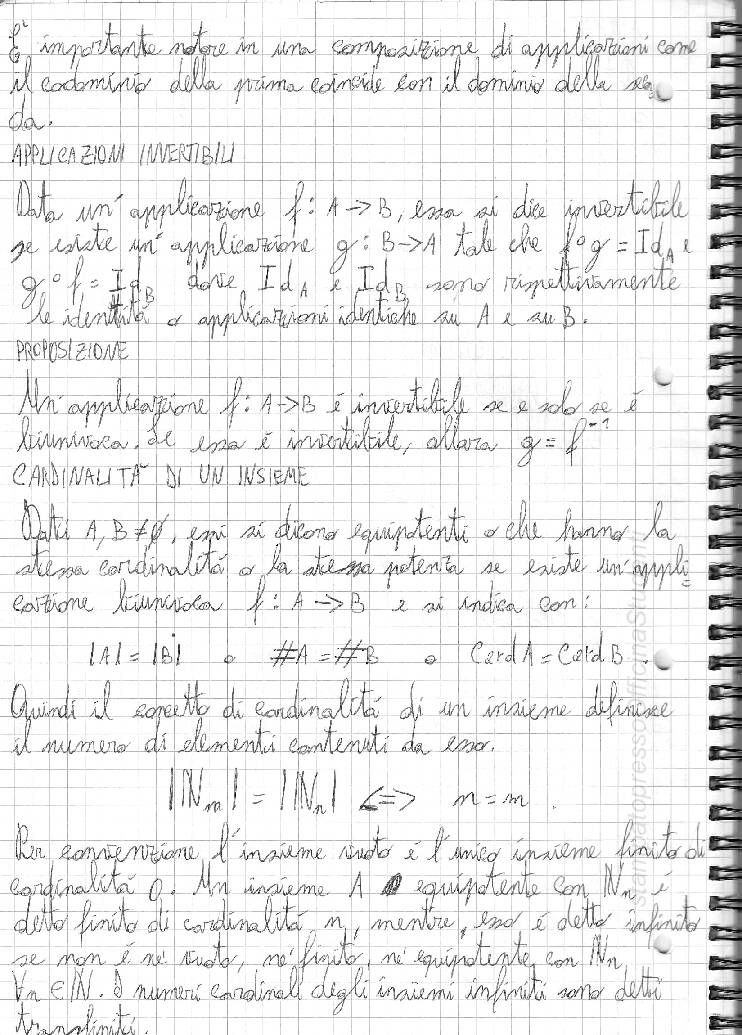 E' importante notare in una composizione di applicazioni come
il codominio della prima coincide con il dominio della
da.
APPLICAZIONI INVERTIBILI
Data un' applicazione f: A → B, essa si dice invertibile
se esiste un' applicazione g: B → A tale che f∘g = Id_A e
g∘f = Id_B dove Id_A e Id_B sono rispettivamente
le identità o applicazioni identiche su A e su B.
PROPOSIZIONE
Un' applicazione f: A → B è invertibile se e solo se è
biunivoca. Se essa è invertibile, allora g = f⁻¹
CARDINALITÀ DI UN INSIEME
Dati A, B ≠ ∅, essi si dicono equipotenti o che hanno la
stessa cardinalità o la stessa potenza se esiste un' appli=
cazione biunivoca f: A → B e si indica con:
|A| = |B| o #A = #B o Card A = Card B.
Quindi il concetto di cardinalità di un insieme definisce
il numero di elementi contenuti da esso.
|ℕ_m| = |ℕ_n| <=> n = m.
Per convenzione l'insieme vuoto è l'unico insieme finito di
cardinalità 0. Un insieme A equipotente con ℕ_n è
detto finito di cardinalità n, mentre, esso è detto infinito
se non è né vuoto, né finito, né equipotente con ℕ_n
∀n ∈ ℕ. I numeri cardinali degli insiemi infiniti sono detti
transfiniti.
stampatopressoofficinaStudenti